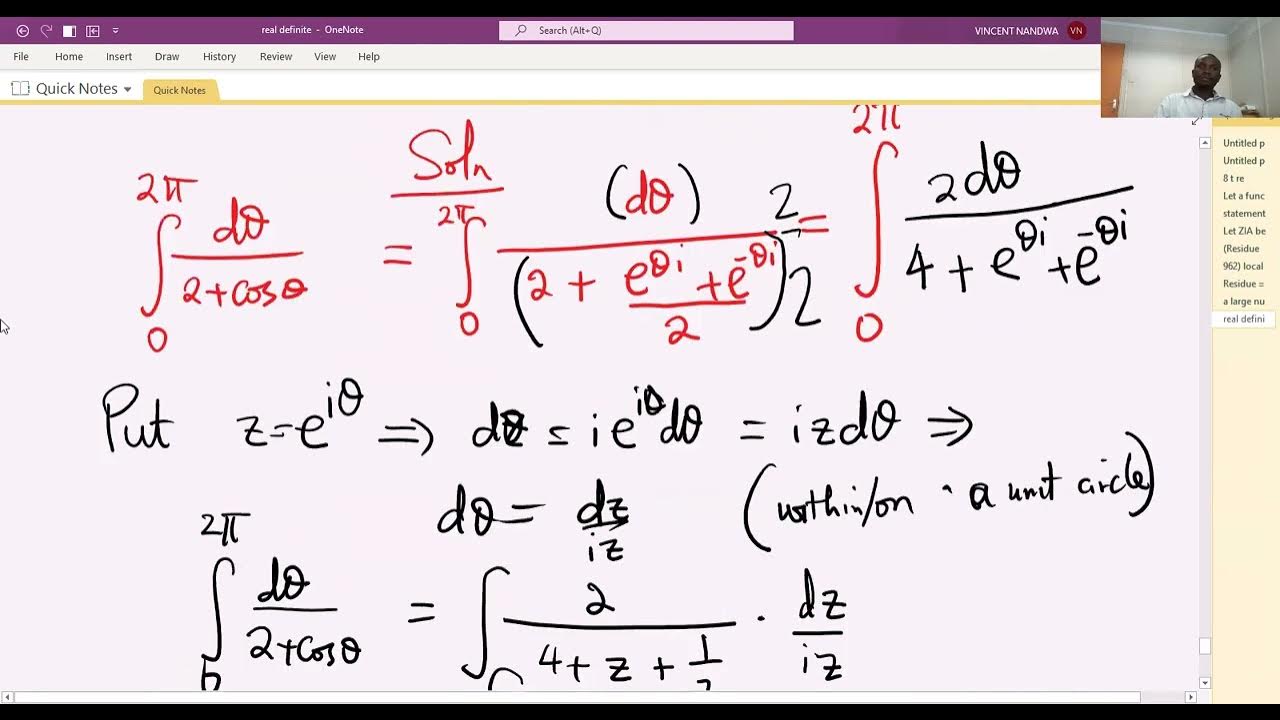 real definite - OneNote
Search (Alt+Q)
VINCENT NANDWA VN
File Home Insert Draw History Review View Help
Quick Notes
Quick Notes
Untitled p
Untitled p
8 t re
Let a func
statement
Let ZIA be
(Residue
962) local
Residue =
a large nu
real defini
Soln
∫₀^{2π} dθ/(2+cosθ) = ∫₀^{2π} (dθ)2/(2 + (e^{θi} + e^{-θi})/2)2 = ∫₀^{2π} 2dθ/(4 + e^{θi} + e^{-θi})
Put z = e^{iθ} ⇒ dz = ie^{iθ}dθ = izdθ ⇒
dθ = dz/iz (within/on a unit circle)
∫₀^{2π} dθ/(2+cosθ) = ∫ 2/(4 + z + 1/z) · dz/iz